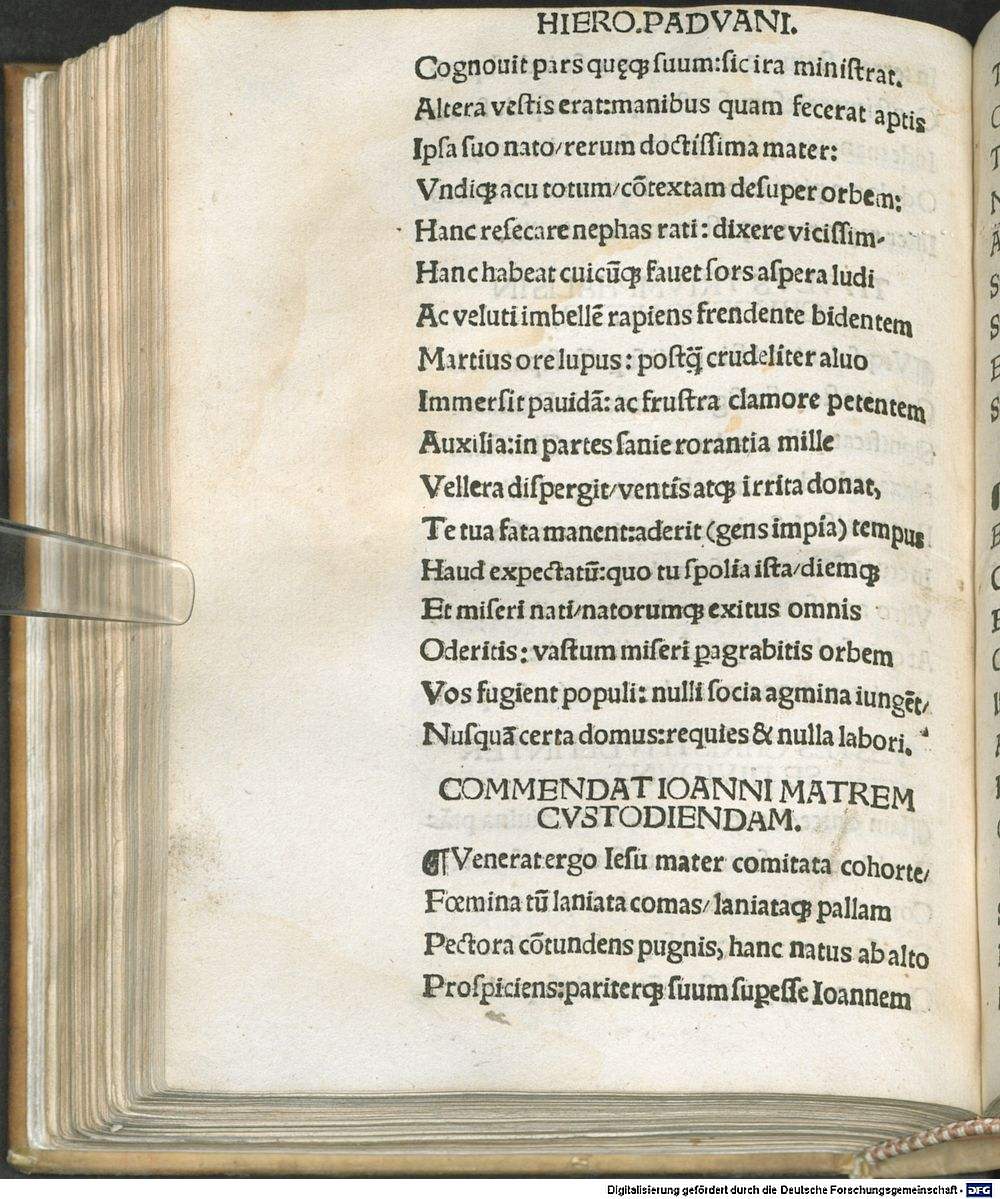 HIERO.PADVANI.
Cognouit pars quęqꝫ ſuum:ſic ira miniſtrat.
Altera veſtis erat:manibus quam fecerat aptis
Ipſa ſuo nato/rerum doctiſſima mater:
Vndiqꝫ acu totum/cõtextam deſuper orbem:
Hanc reſecare nephas rati: dixere viciſſim-
Hanc habeat cuicũqꝫ fauet ſors aſpera ludi
Ac veluti imbellẽ rapiens frendente bidentem
Martius ore lupus: poſtq̃ crudeliter aluo
Immerſit pauidã: ac fruſtra clamore petentem
Auxilia:in partes ſanie rorantia mille
Vellera diſpergit/ventis atqꝫ irrita donat,
Te tua fata manent:aderit (gens impia) tempus
Haud expectatũ:quo tu ſpolia iſta/diemqꝫ
Et miſeri nati/natorumqꝫ exitus omnis
Oderitis: vaſtum miſeri ꝑagrabitis orbem
Vos fugient populi: nulli ſocia agmina iungẽt/
Nuſquã certa domus:requies & nulla labori.
COMMENDAT IOANNI MATREM
CVSTODIENDAM.
¶Venerat ergo Ieſu mater comitata cohorte/
Fœmina tũ laniata comas/laniataqꝫ pallam
Pectora cõtundens pugnis, hanc natus ab alto
Proſpiciens:pariterqꝫ ſuum ſuꝑeſſe Ioannem
Digitalisierung gefördert durch die Deutsche Forschungsgemeinschaft - DFG